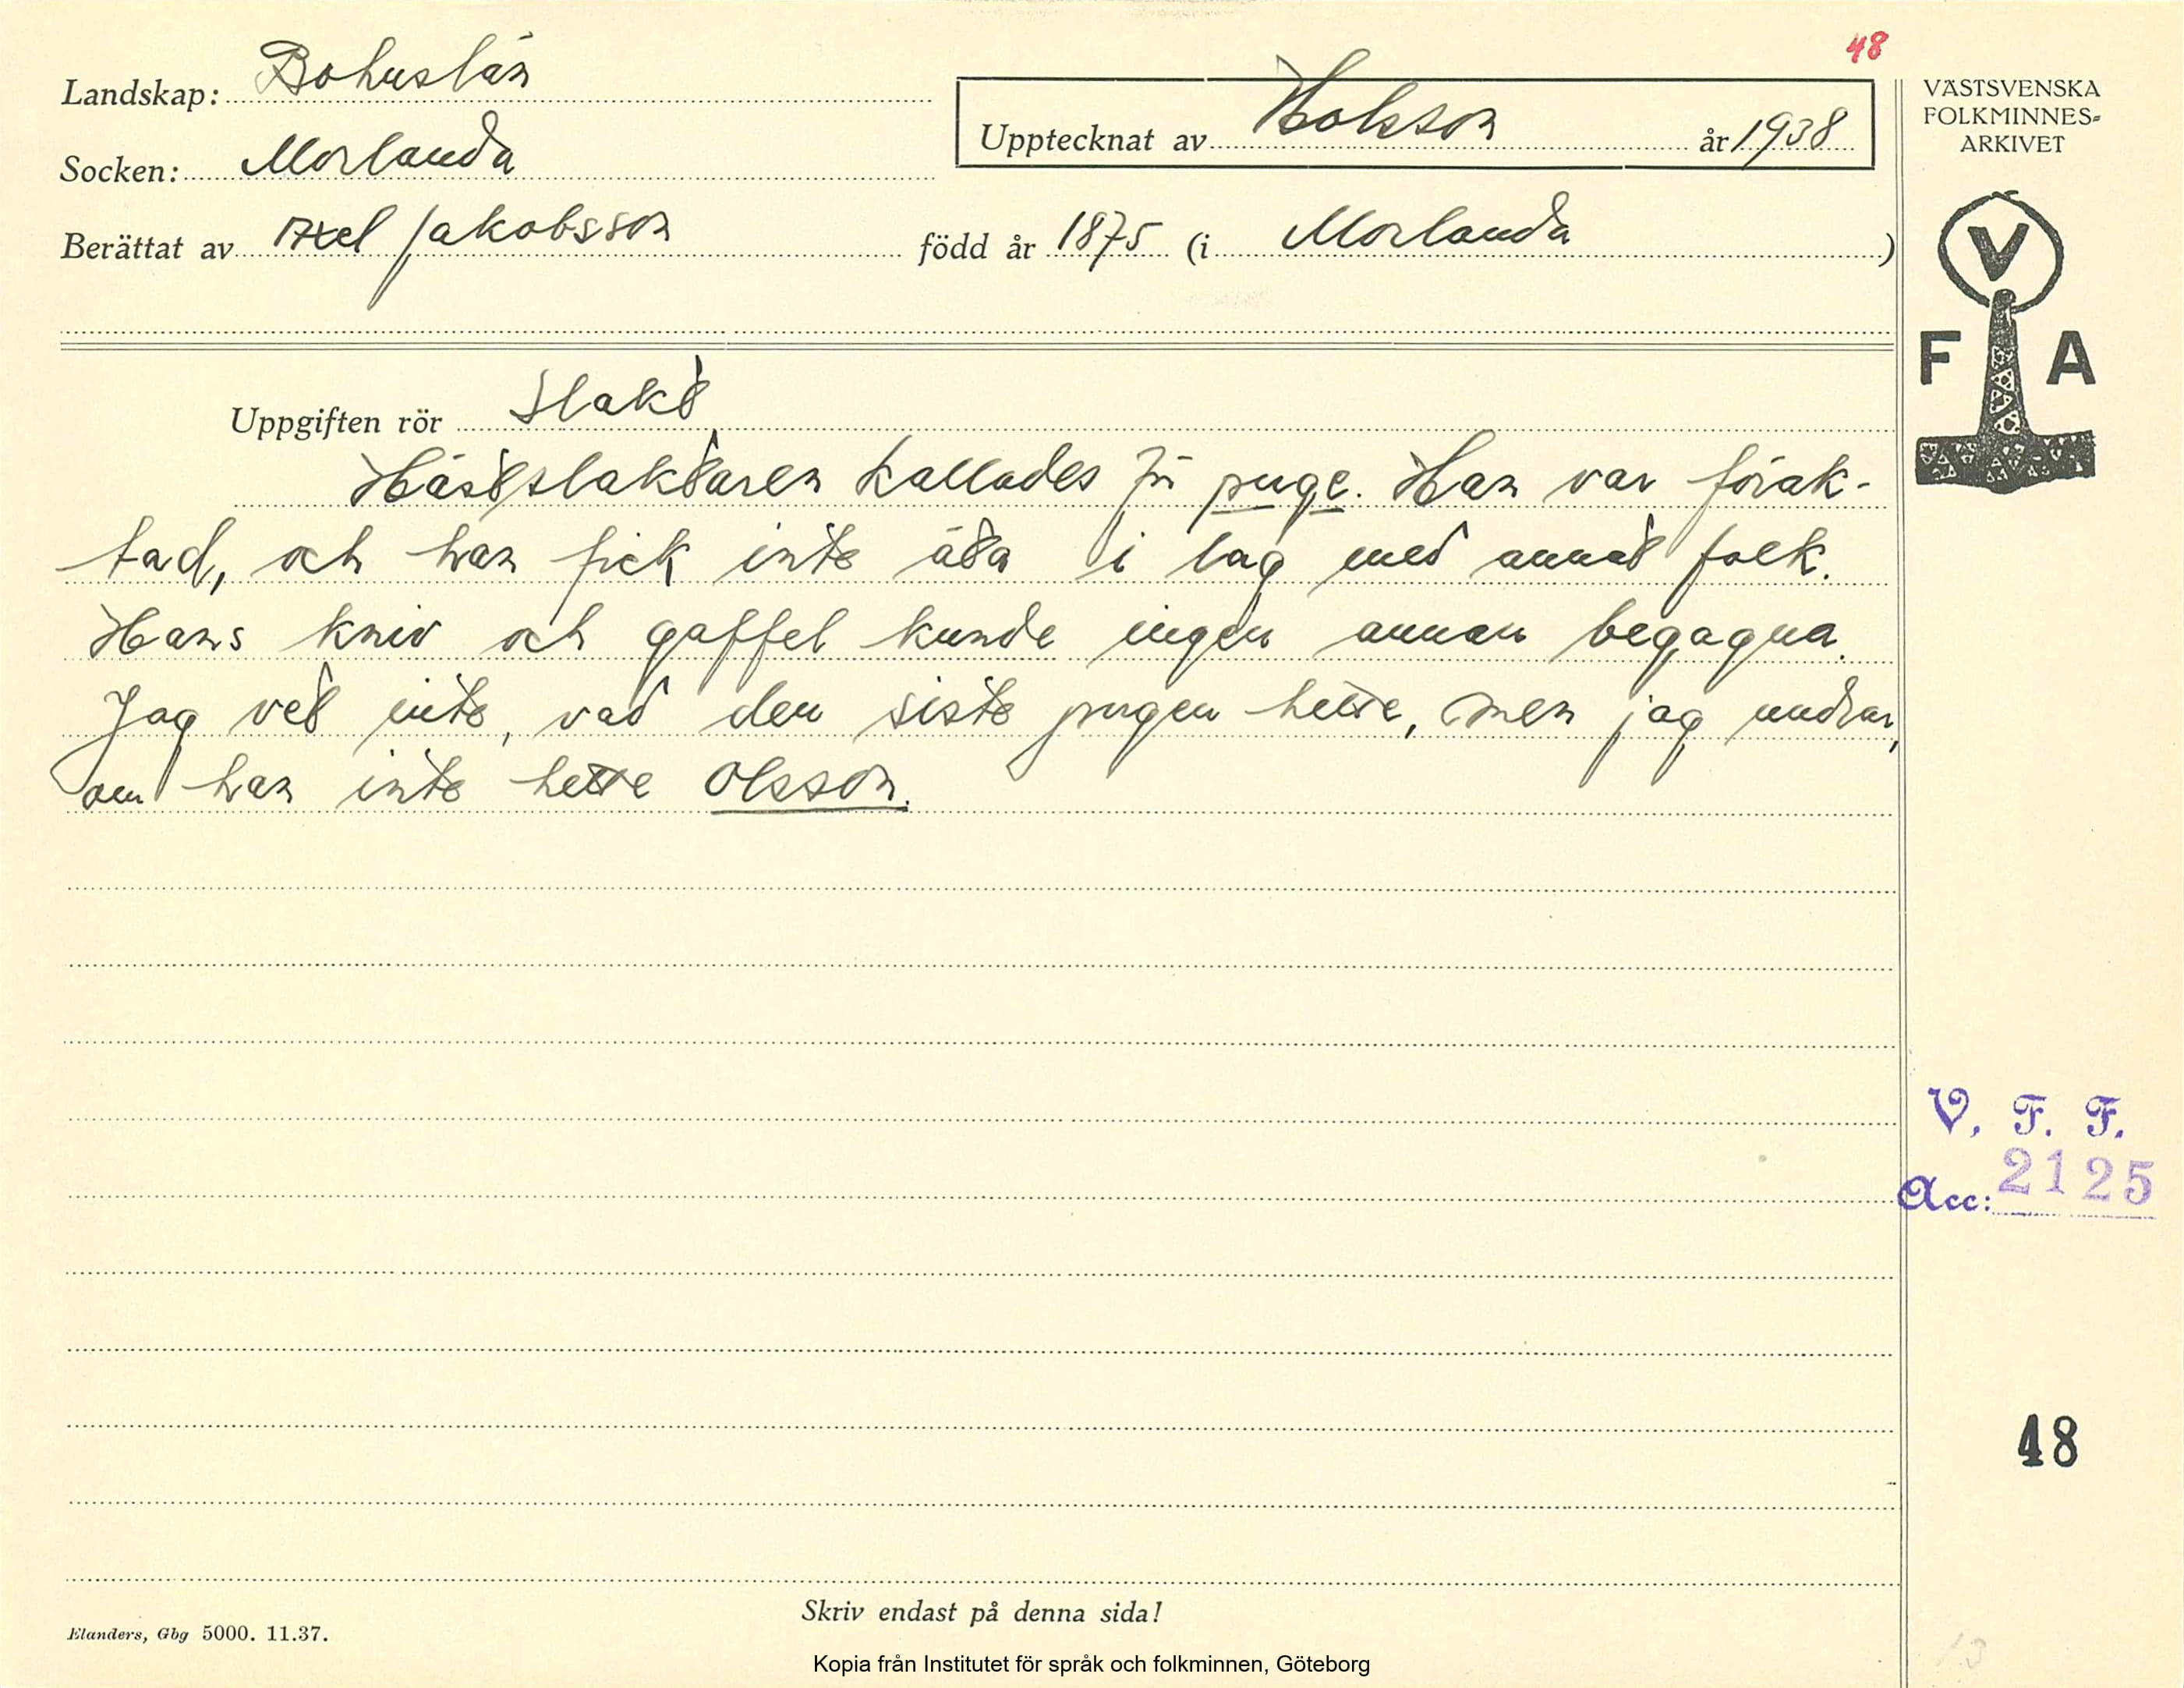 48
Landskap: Bohuslän
Upptecknat av Holsson år 1938
Socken: Morlanda
Berättat av Axel Jakobsson född år 1875 (i Morlanda)
VÄSTSVENSKA
FOLKMINNES-
ARKIVET
V
F A
Uppgiften rör Slakt
Hästslaktaren kallades puge. Han var förak-
tad, och han fick inte äta i lag med annat folk.
Hans kniv och gaffel kunde ingen annan begagna.
Jag vet inte, vad den siste pugen hette, men jag undrar,
om han inte hette Olsson.
V. F. F.
Acc: 2125
48
Skriv endast på denna sida!
Elanders, Gbg 5000. 11.37.
13
Kopia från Institutet för språk och folkminnen, Göteborg